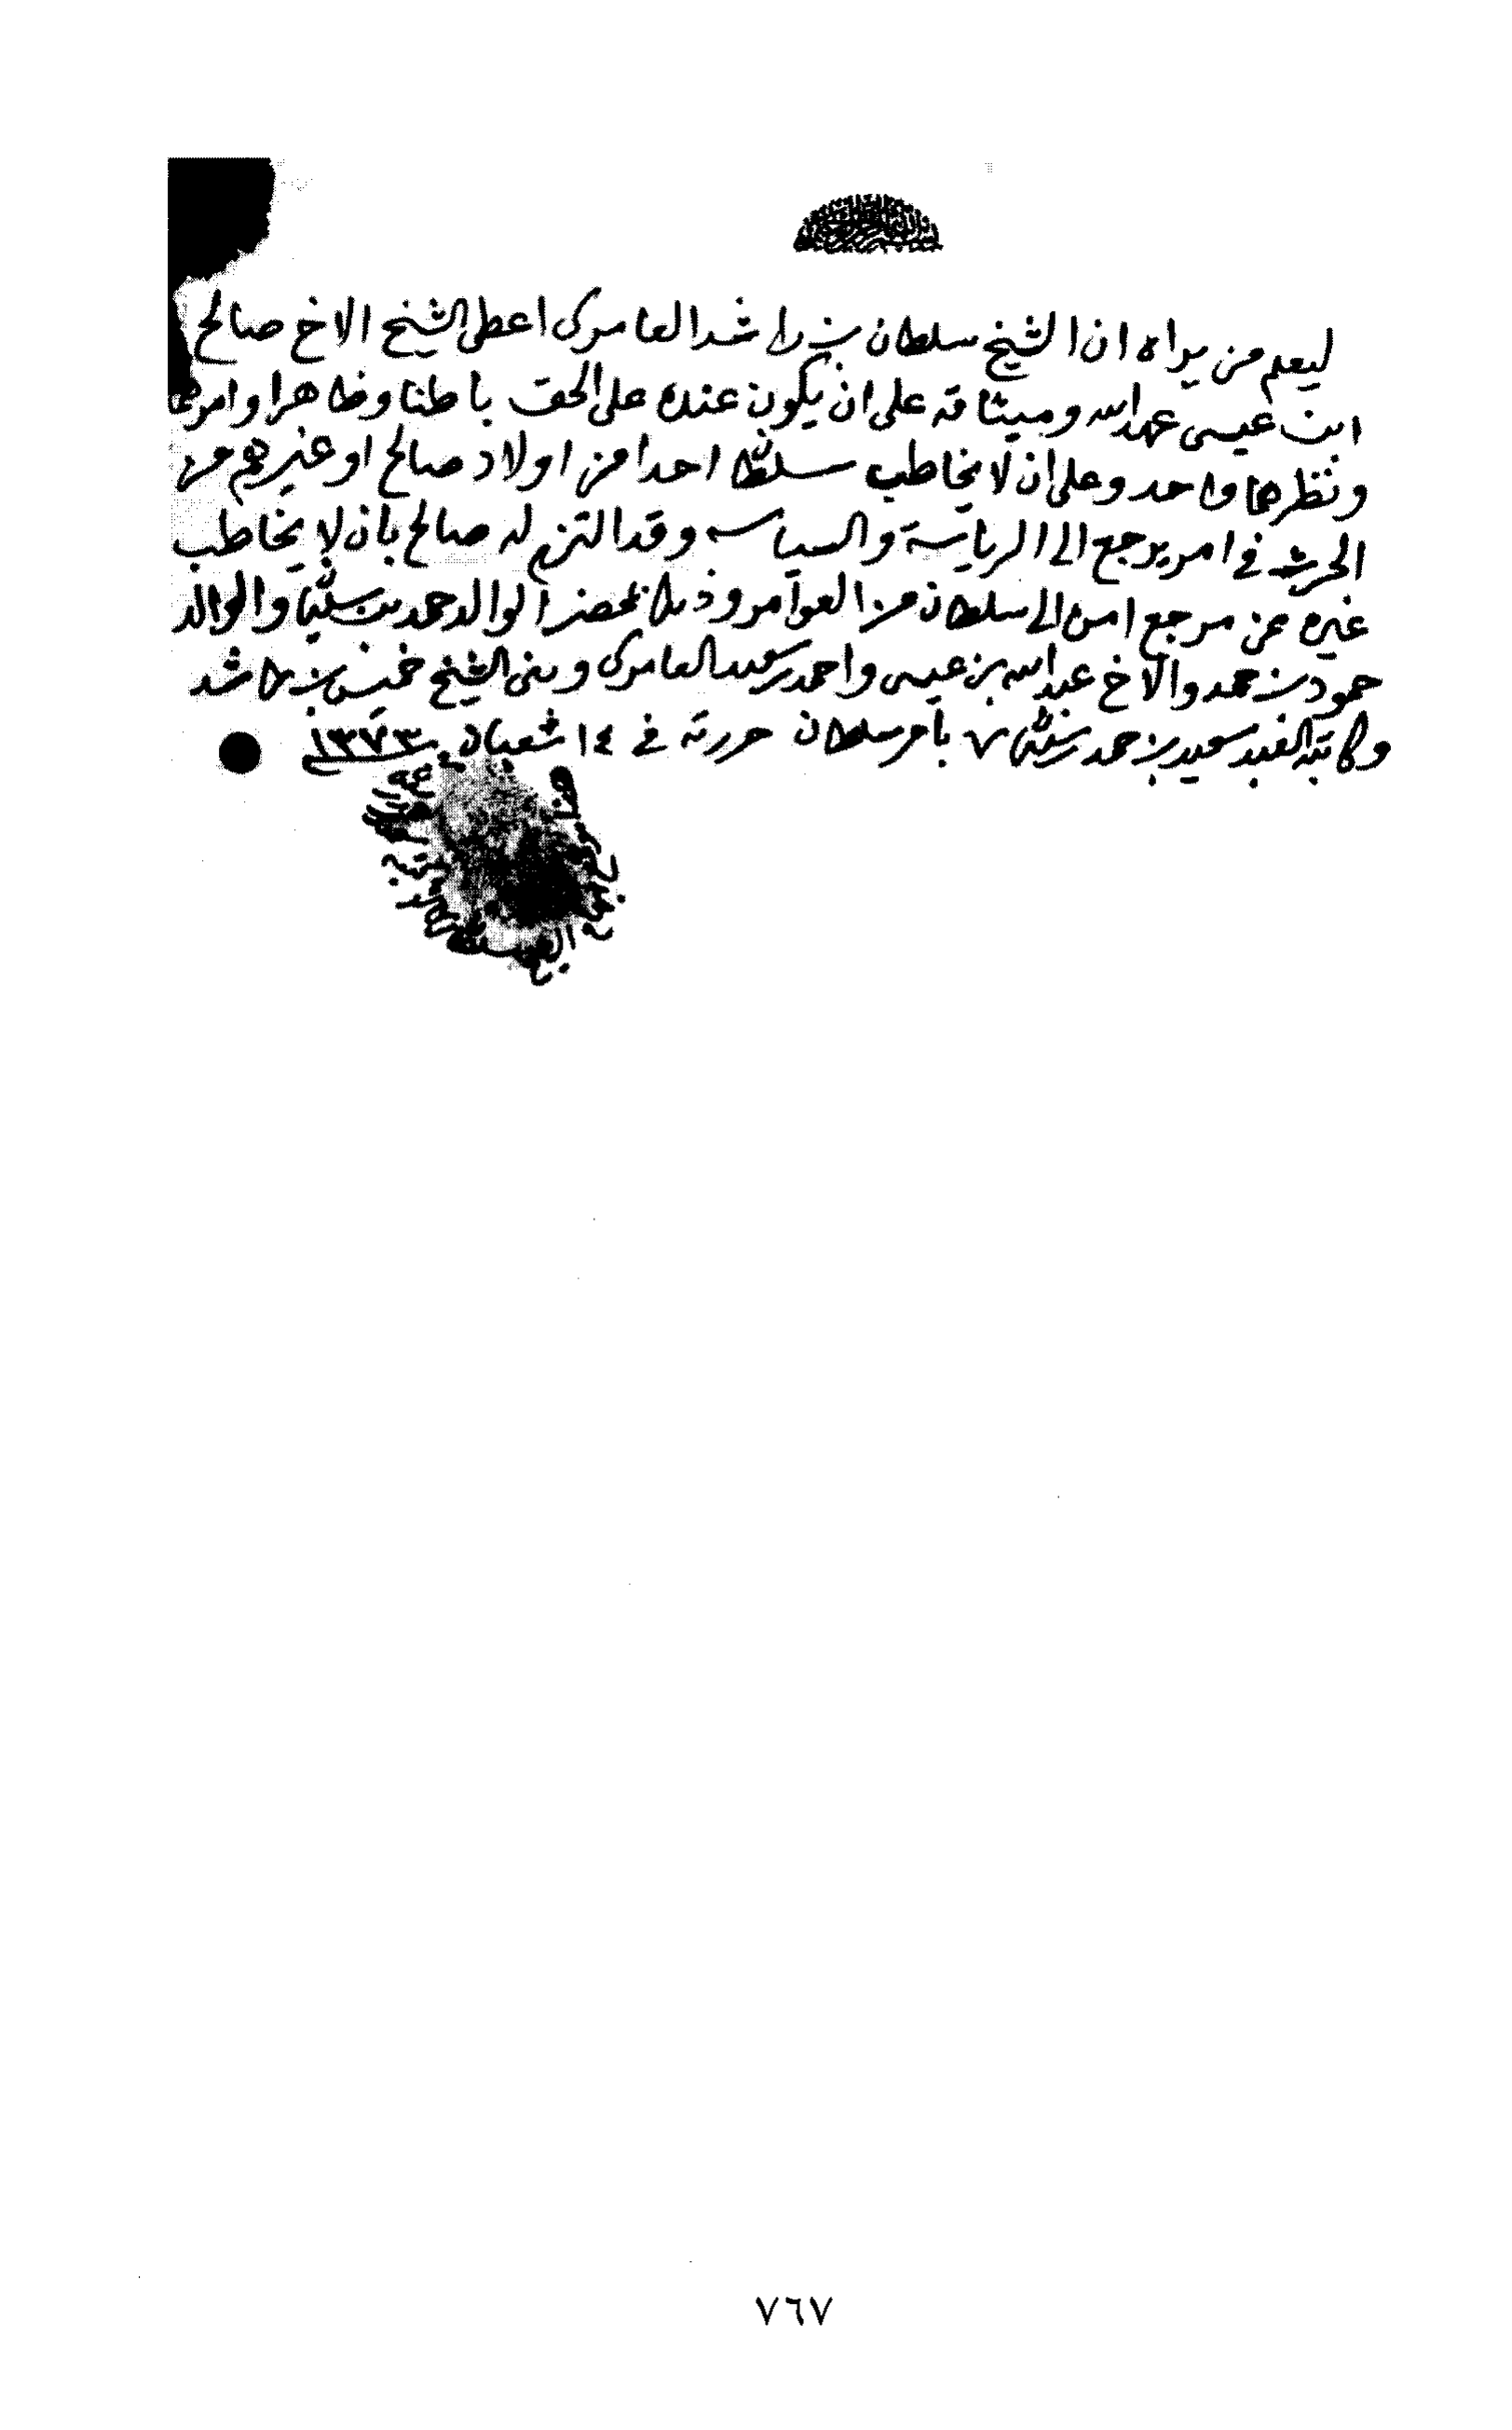 ليعلم من يراه ان الشيخ سلطان بن راشد العامري اعطى الشيخ الاخ صالح
ابن عيسى عهد الله وميثاقه على ان يكون عنده على الحق باطنا وظاهرا وامرهما
ونظرهما واحد وعلى ان لا يخاطب سلطان احدا من اولاد صالح او غيرهم من
الحرث في امر يرجع الى الرياسة والسياسه وقد التزم له صالح بان لا يخاطب
غيره عن مرجع امره الى سلطان من العوامر وذلك بمحضر الوالد حمد بن سليمان والوالد
حمود بن حمد والاخ عبدالله بن عيسى واحمد بن سعيد العامري وبني الشيخ خميس بن راشد
وكاتبه العبد سعيد بن حمد بن سليمان بأمر سلطان حررته في ١٤ شعبان ١٣٧٣
٧٦٧